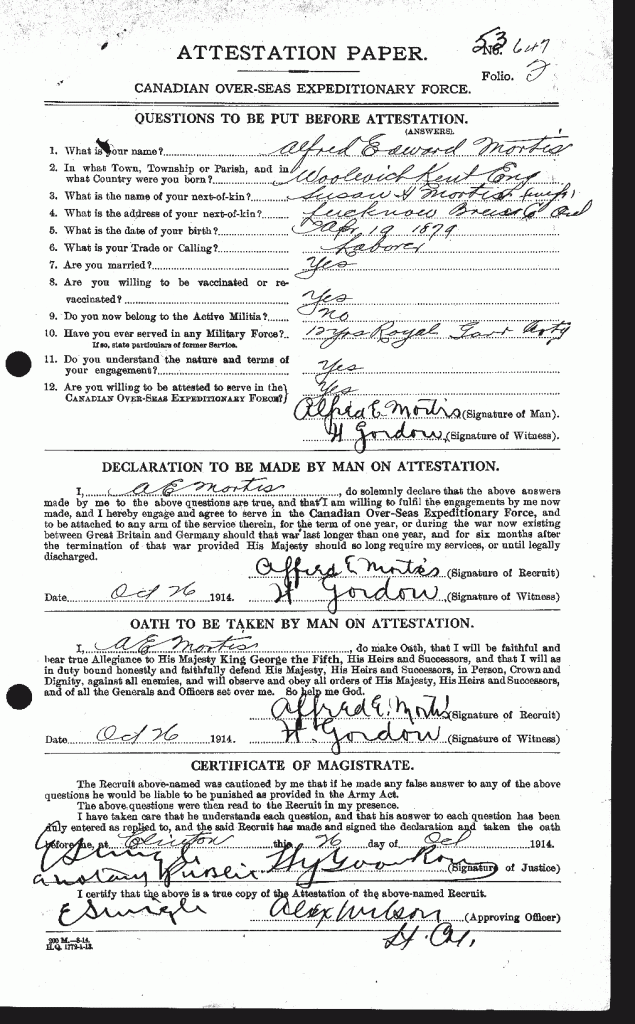 53
No. 647
ATTESTATION PAPER.
Folio. 2
CANADIAN OVER-SEAS EXPEDITIONARY FORCE.
QUESTIONS TO BE PUT BEFORE ATTESTATION.
(ANSWERS).
1. What is your name? Alfred Edward Mortis
2. In what Town, Township or Parish, and in
what Country were you born? Woolwich Kent Eng
3. What is the name of your next-of-kin? Susan A Mortis (wife)
4. What is the address of your next-of-kin? Lucknow Bruce Co Ont
5. What is the date of your birth? Apr 19 1879
6. What is your Trade or Calling? Laborer
7. Are you married? Yes
8. Are you willing to be vaccinated or re-
vaccinated? Yes
9. Do you now belong to the Active Militia? No
10. Have you ever served in any Military Force? 12 yrs Royal Garr Arty
If so, state particulars of former Service.
11. Do you understand the nature and terms of
your engagement? Yes
12. Are you willing to be attested to serve in the
CANADIAN OVER-SEAS EXPEDITIONARY FORCE? Yes
Alfred E Mortis (Signature of Man).
H Gordon (Signature of Witness).
DECLARATION TO BE MADE BY MAN ON ATTESTATION.
I, A E Mortis, do solemnly declare that the above answers
made by me to the above questions are true, and that I am willing to fulfil the engagements by me now
made, and I hereby engage and agree to serve in the Canadian Over-Seas Expeditionary Force, and
to be attached to any arm of the service therein, for the term of one year, or during the war now existing
between Great Britain and Germany should that war last longer than one year, and for six months after
the termination of that war provided His Majesty should so long require my services, or until legally
discharged.
Alfred E Mortis (Signature of Recruit)
Date Oct 26 1914. H Gordon (Signature of Witness)
OATH TO BE TAKEN BY MAN ON ATTESTATION.
I, A E Mortis, do make Oath, that I will be faithful and
bear true Allegiance to His Majesty King George the Fifth, His Heirs and Successors, and that I will as
in duty bound honestly and faithfully defend His Majesty, His Heirs and Successors, in Person, Crown and
Dignity, against all enemies, and will observe and obey all orders of His Majesty, His Heirs and Successors,
and of all the Generals and Officers set over me. So help me God.
Alfred E. Mortis (Signature of Recruit)
Date Oct 26 1914. H. Gordon (Signature of Witness)
CERTIFICATE OF MAGISTRATE.
The Recruit above-named was cautioned by me that if he made any false answer to any of the above
questions he would be liable to be punished as provided in the Army Act.
The above questions were then read to the Recruit in my presence.
I have taken care that he understands each question, and that his answer to each question has been
duly entered as replied to, and the said Recruit has made and signed the declaration and taken the oath
before me, at Clinton this 26 day of Oct 1914.
a notary Public (Signature of Justice)
I certify that the above is a true copy of the Attestation of the above-named Recruit.
Alex Wilson (Approving Officer)
Lt. Col.
200 M.—8-14.
H.Q. 1772-1-13.